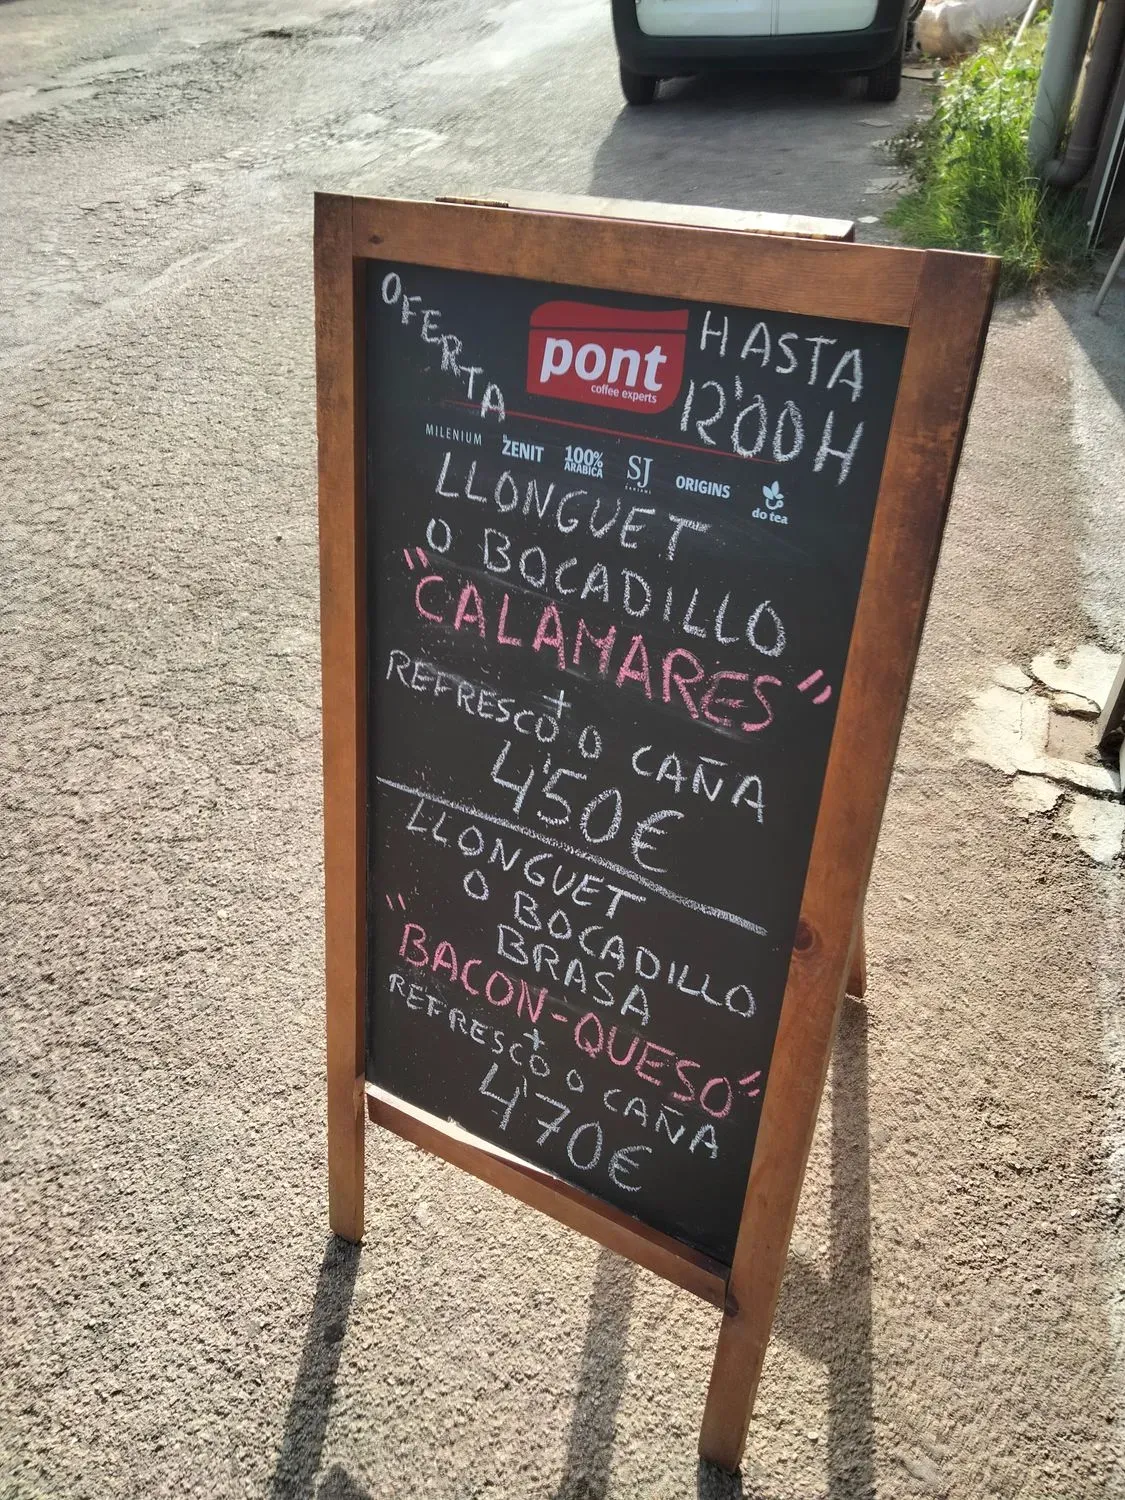 OFERTA
pont
coffee experts
HASTA
12'00H
MILENIUM ZENIT 100% ARABICA SJ ORIGINS do tea
LLONGUET
O BOCADILLO
"CALAMARES"
+
REFRESCO O CAÑA
4'50€
LLONGUET
O BOCADILLO
BRASA
"BACON-QUESO"
+
REFRESCO O CAÑA
4'70€